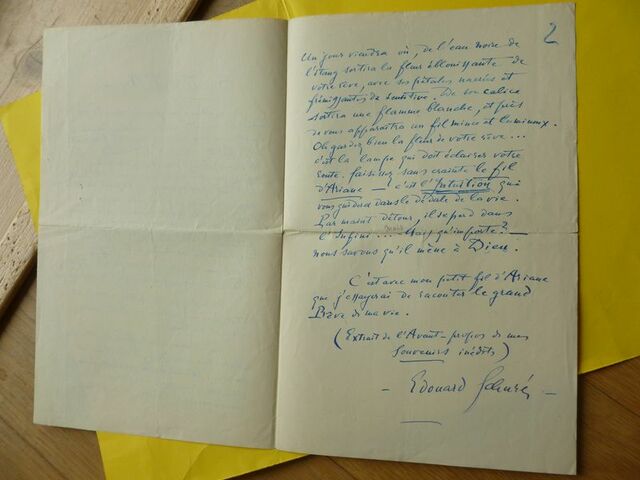 2
Un jour viendra où, de l'eau noire de
l'étang sortira la fleur éblouissante de
votre rêve, avec ses pétales nacrées et
frémissantes de sensitive. De son calice
sortira une flamme blanche, et près
de vous apparaîtra un fil mince et lumineux.
Oh gardez bien la fleur de votre rêve...
c'est la lampe qui doit éclairer votre
route. Saisissez sans crainte le fil
d'Ariane — c'est l'Intuition qui
vous guidera dans le dédale de la vie.
Par maint détour, il se perd dans
l'Infini... Mais qu'importe? —
nous savons qu'il mène à Dieu.
C'est avec mon petit fil d'Ariane
que j'essayerai de raconter le grand
Rêve de ma vie.
(Extrait de l'Avant-propos de mes
Souvenirs inédits)
— Édouard Schuré —